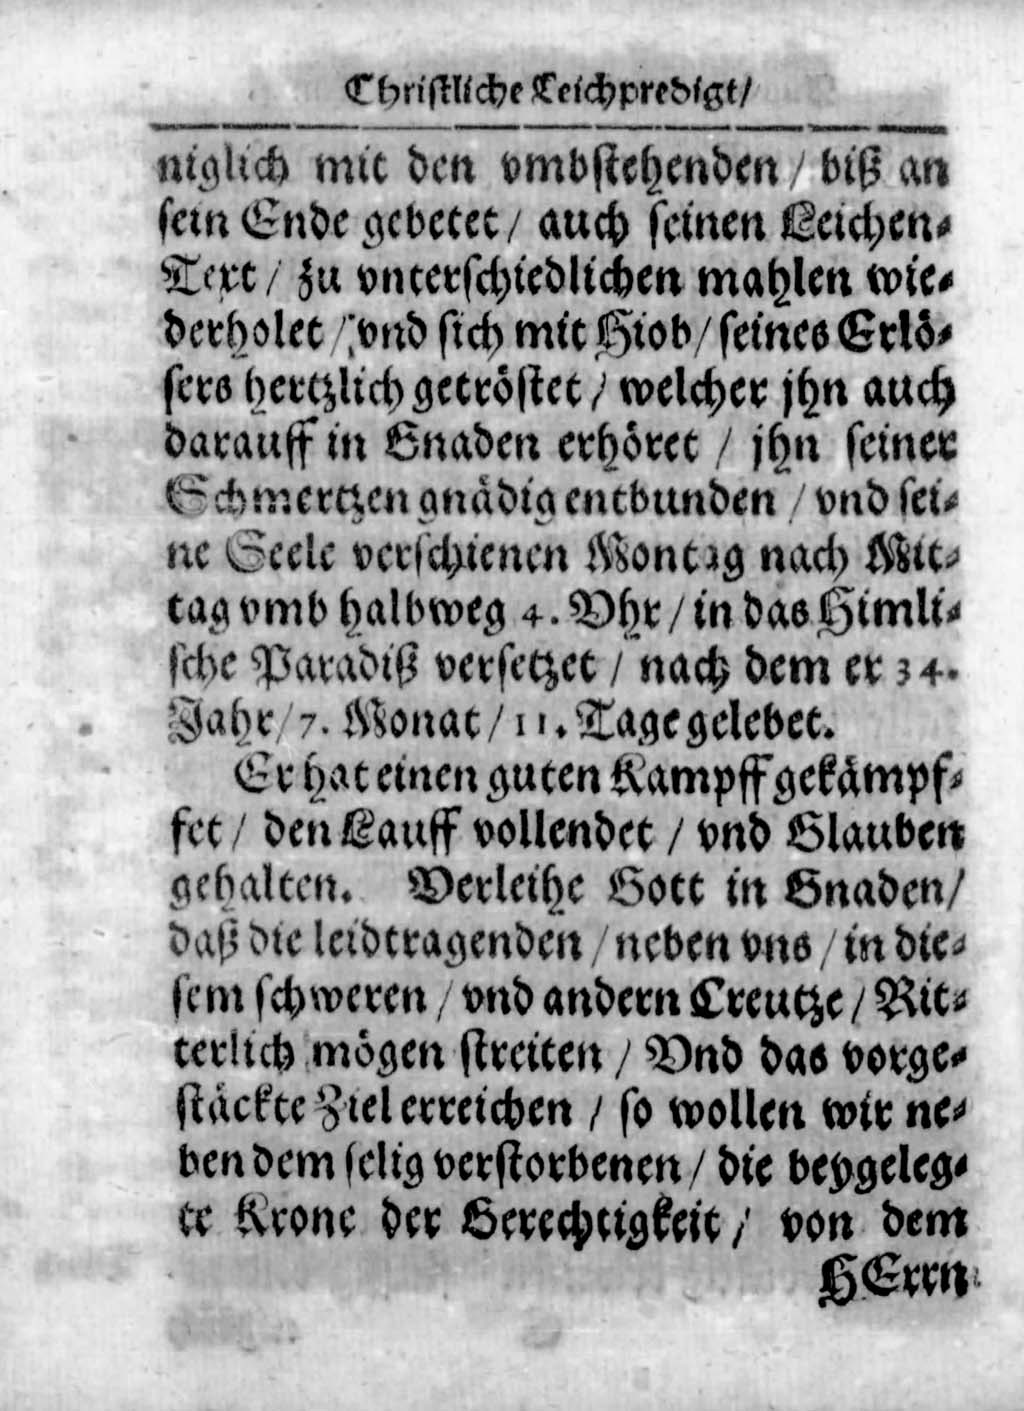 Christliche Leichpredigt/
niglich mit den vmbstehenden / biß an
sein Ende gebetet / auch seinen Leichen-
Text / zu vnterschiedlichen mahlen wie-
derholet / vnd sich mit Hiob / seines Erlö-
sers hertzlich getröstet / welcher jhn auch
darauff in Gnaden erhöret / jhn seiner
Schmertzen gnädig entbunden / vnd sei-
ne Seele verschienen Montag nach Mit-
tag vmb halbweg 4. Vhr / in das Himli-
sche Paradiß versetzet / nach dem er 34.
Jahr / 7. Monat / 11. Tage gelebet.
Er hat einen guten Kampff gekämpf-
fet / den Lauff vollendet / vnd Glauben
gehalten. Verleihe Gott in Gnaden /
daß die leidtragenden / neben vns / in die-
sem schweren / vnd andern Creutze / Rit-
terlich mögen streiten / Vnd das vorge-
stäckte Ziel erreichen / so wollen wir ne-
ben dem selig verstorbenen / die beygeleg-
te Krone der Gerechtigkeit / von dem
HErrn